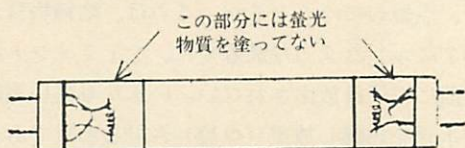 この部分には螢光
物質を塗ってない